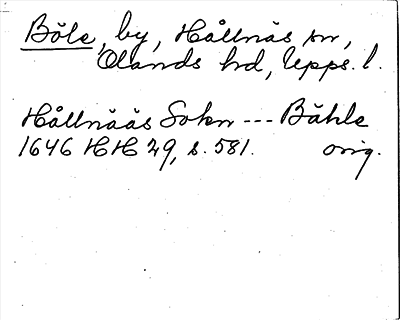 Böle, by, Hållnäs sn,
Olands hd, Upps. l.
Hållnääs Sokn --- Bähle
1646 HH 29, s. 581. orig.